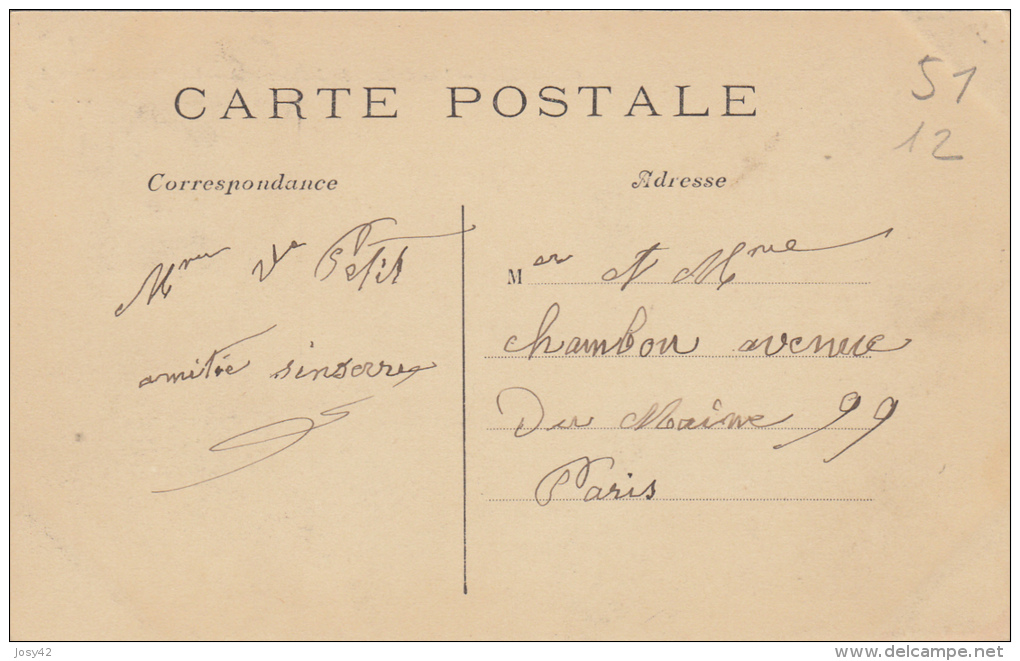 CARTE POSTALE
51
12
Correspondance
Mme Ve Petit
amitiée sinserre
Adresse
Mer et Mme
Chambon avenue
Du Maine 99
Paris
Josy42
www.delcampe.net